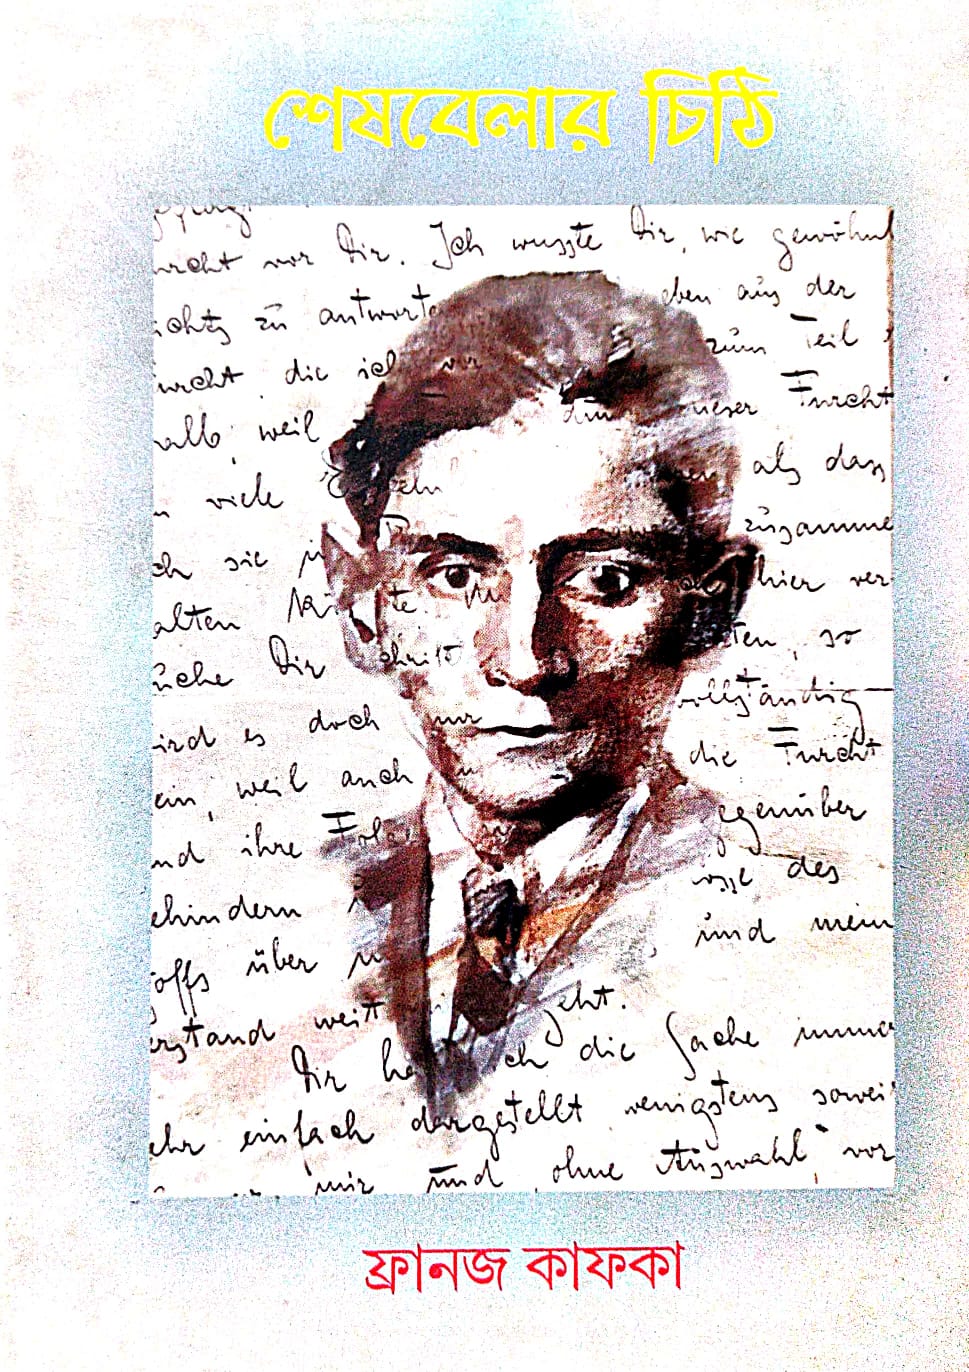 শেষবেলার চিঠি
urcht vor Dir. Ich wusste Dir, wie gewöhnl
ichts zu antworte eben aus der
urcht die ich vor zum Teil
halb, weil dieser Furcht
viele als dass
ch sie zusamme
alten hier ver
suche Dir schrift ten, so
ird es doch nur vollständig
ein, weil auch die Furcht
nd ihre Folge gegenüber
ehindern des
offs über und mein
erstand weit geht.
Dir ha ich die Sache imme
ehr einfach dargestellt wenigstens sowei
mir und ohne Auswahl vor
ফ্রানজ কাফকা